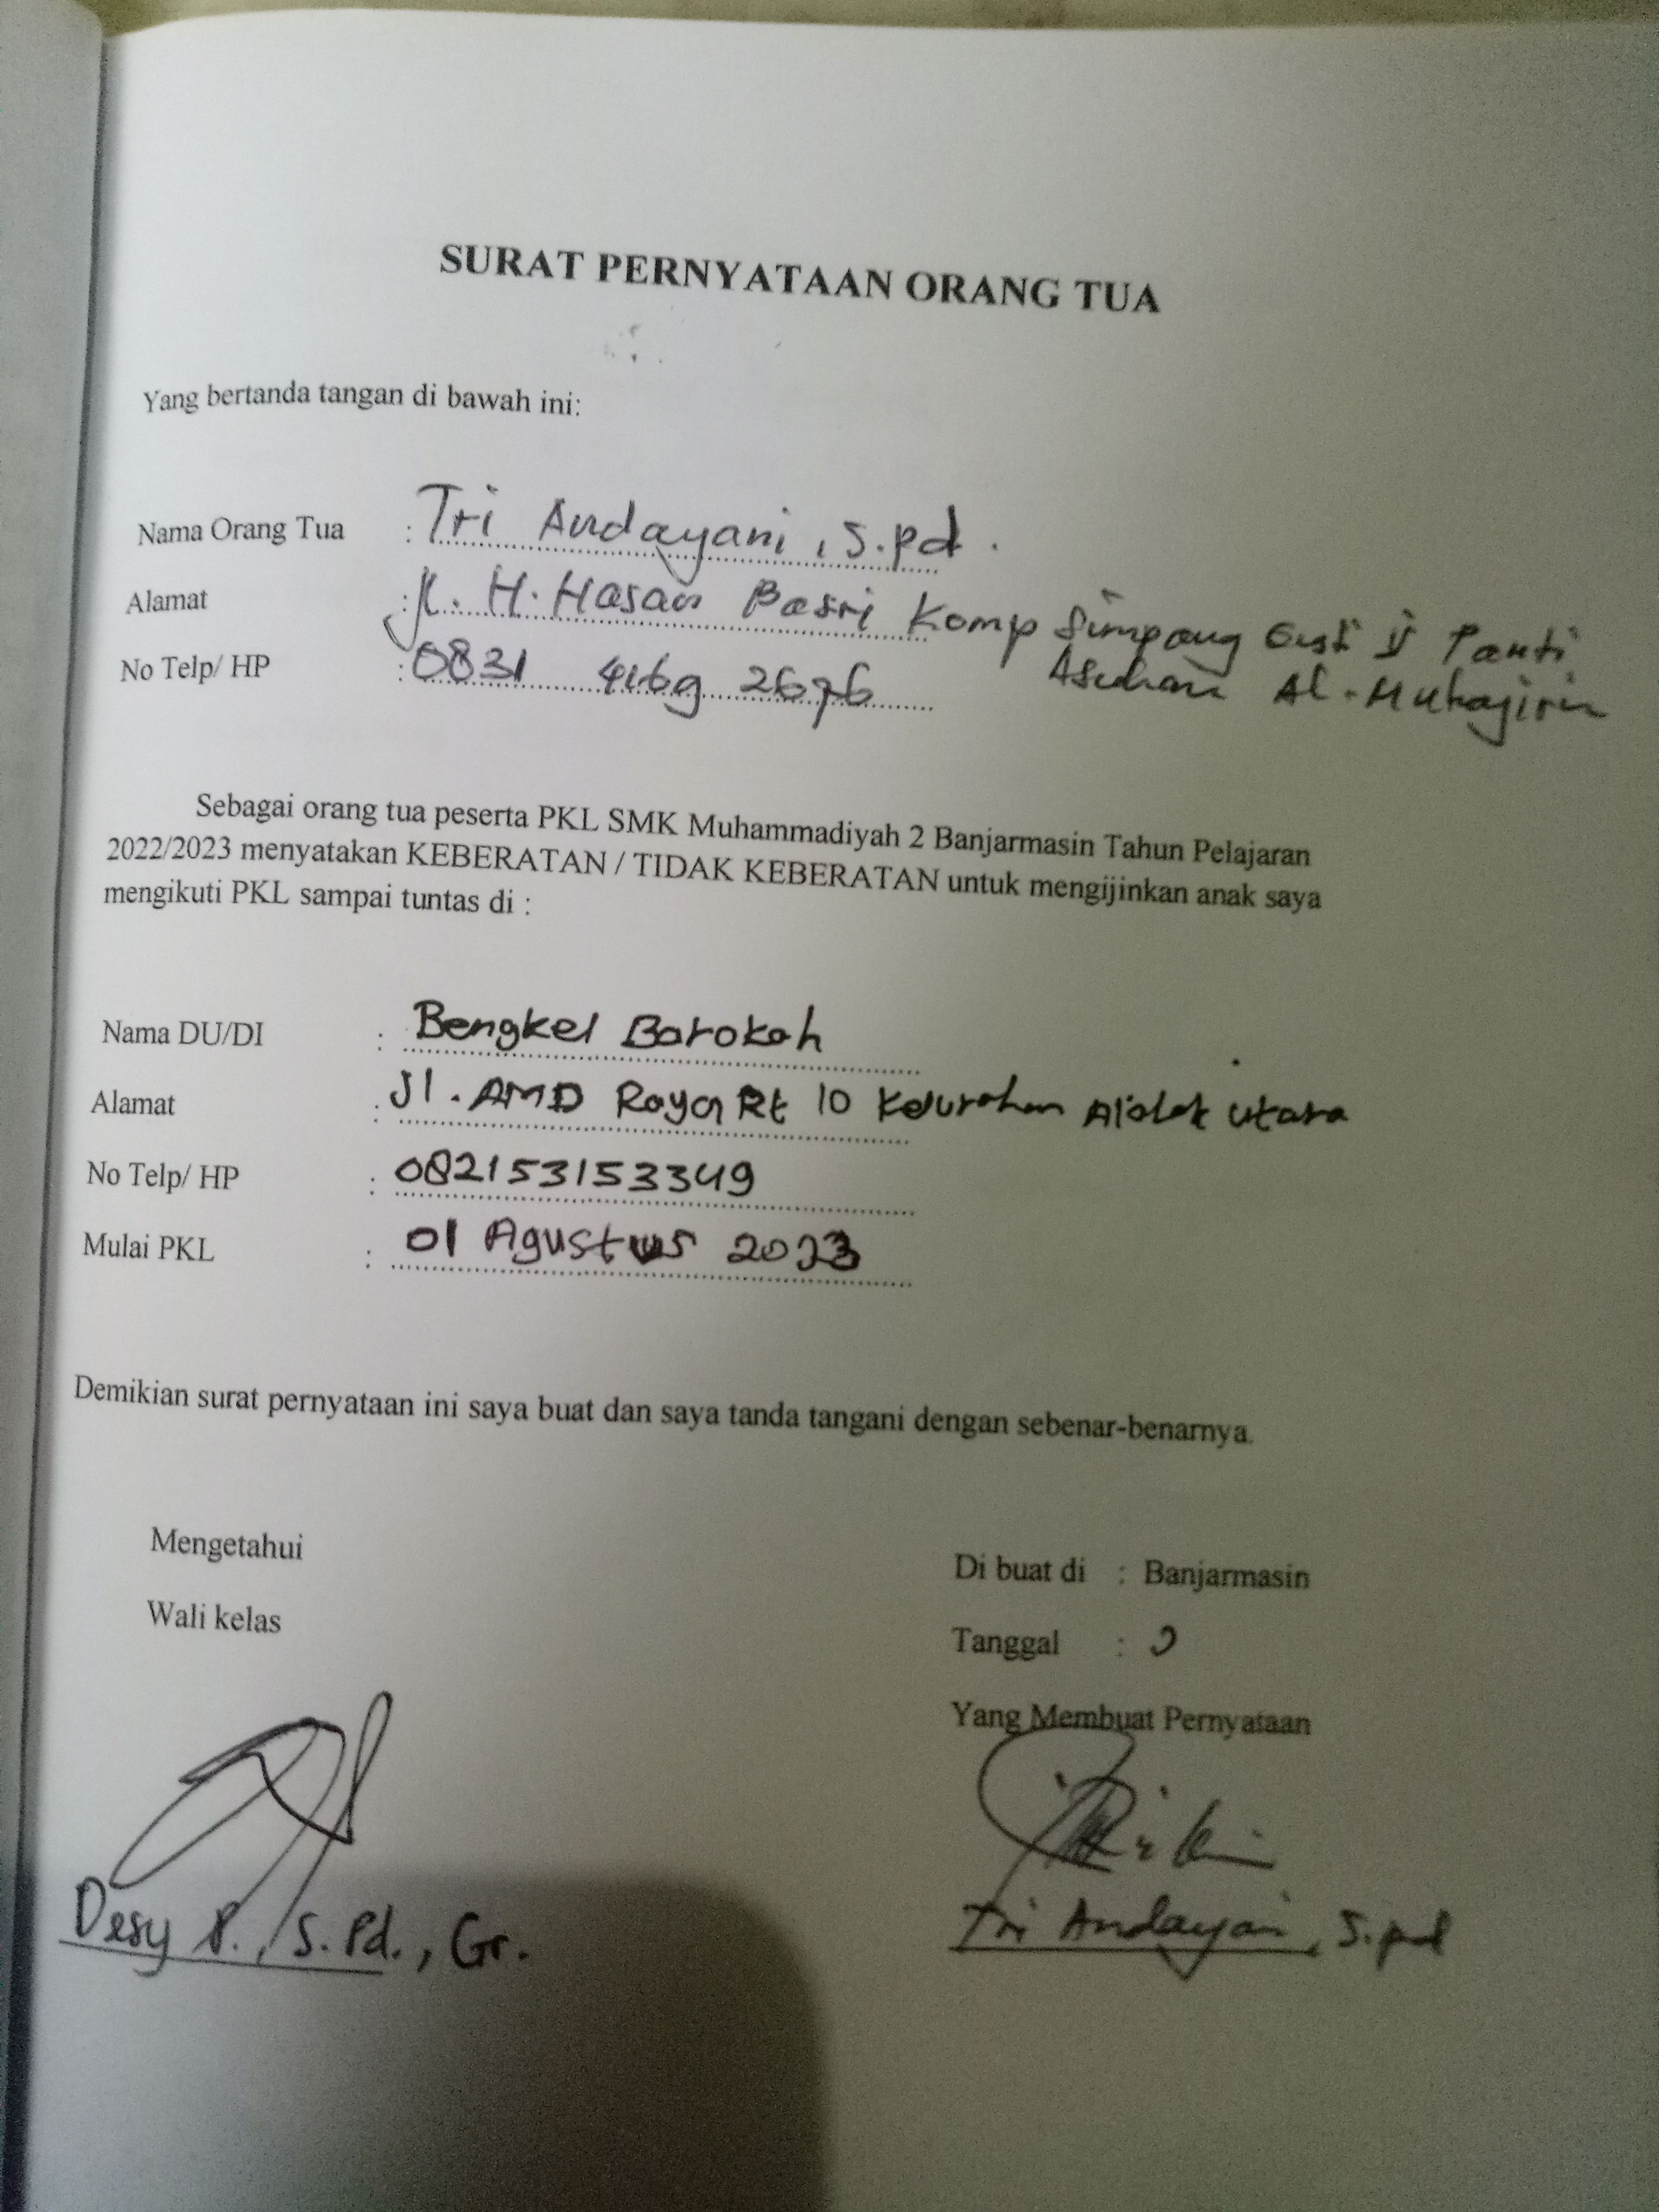 SURAT PERNYATAAN ORANG TUA
Yang bertanda tangan di bawah ini:
Nama Orang Tua : Tri Andayani, S.pd.
Alamat : Jl. H. Hasan Basri Komp Simpang Gusti II Panti
Asuhan Al-Muhajirin
No Telp/ HP : 0831 4169 2676
Sebagai orang tua peserta PKL SMK Muhammadiyah 2 Banjarmasin Tahun Pelajaran
2022/2023 menyatakan KEBERATAN / TIDAK KEBERATAN untuk mengijinkan anak saya
mengikuti PKL sampai tuntas di :
Nama DU/DI : Bengkel Barokah
Alamat : Jl. AMD Raya Rt 10 Kelurahan Alalak Utara
No Telp/ HP : 082153153349
Mulai PKL : 01 Agustus 2023
Demikian surat pernyataan ini saya buat dan saya tanda tangani dengan sebenar-benarnya.
Mengetahui
Wali kelas
Di buat di : Banjarmasin
Tanggal :
Yang Membuat Pernyataan
Desy P., S.Pd., Gr.
Tri Andayani, S.pd